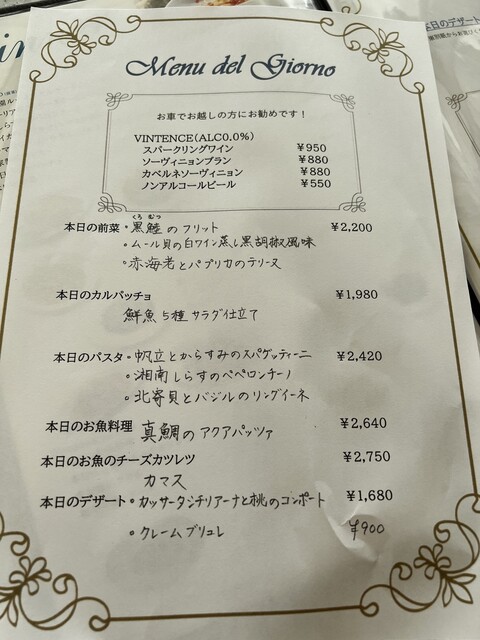 Menu del Giorno
お車でお越しの方にお勧めです！
VINTENCE(ALC0.0%)
スパークリングワイン ￥950
ソーヴィニョンブラン ￥880
カベルネソーヴィニョン ￥880
ノンアルコールビール ￥550
くろ むつ
本日の前菜・黒鯥のフリット ￥2,200
・ムール貝の白ワイン蒸し黒胡椒風味
・赤海老とパプリカのテリーヌ
本日のカルパッチョ ￥1,980
鮮魚5種サラダ仕立て
本日のパスタ・帆立とからすみのスパゲッティーニ ￥2,420
・湘南しらすのペペロンチーノ
・北寄貝とバジルのリングイーネ
本日のお魚料理 真鯛のアクアパッツァ ￥2,640
本日のお魚のチーズカツレツ ￥2,750
カマス
本日のデザート・カッサータシチリアーナと桃のコンポート ￥1,680
・クレームブリュレ ￥900
本日のデザート